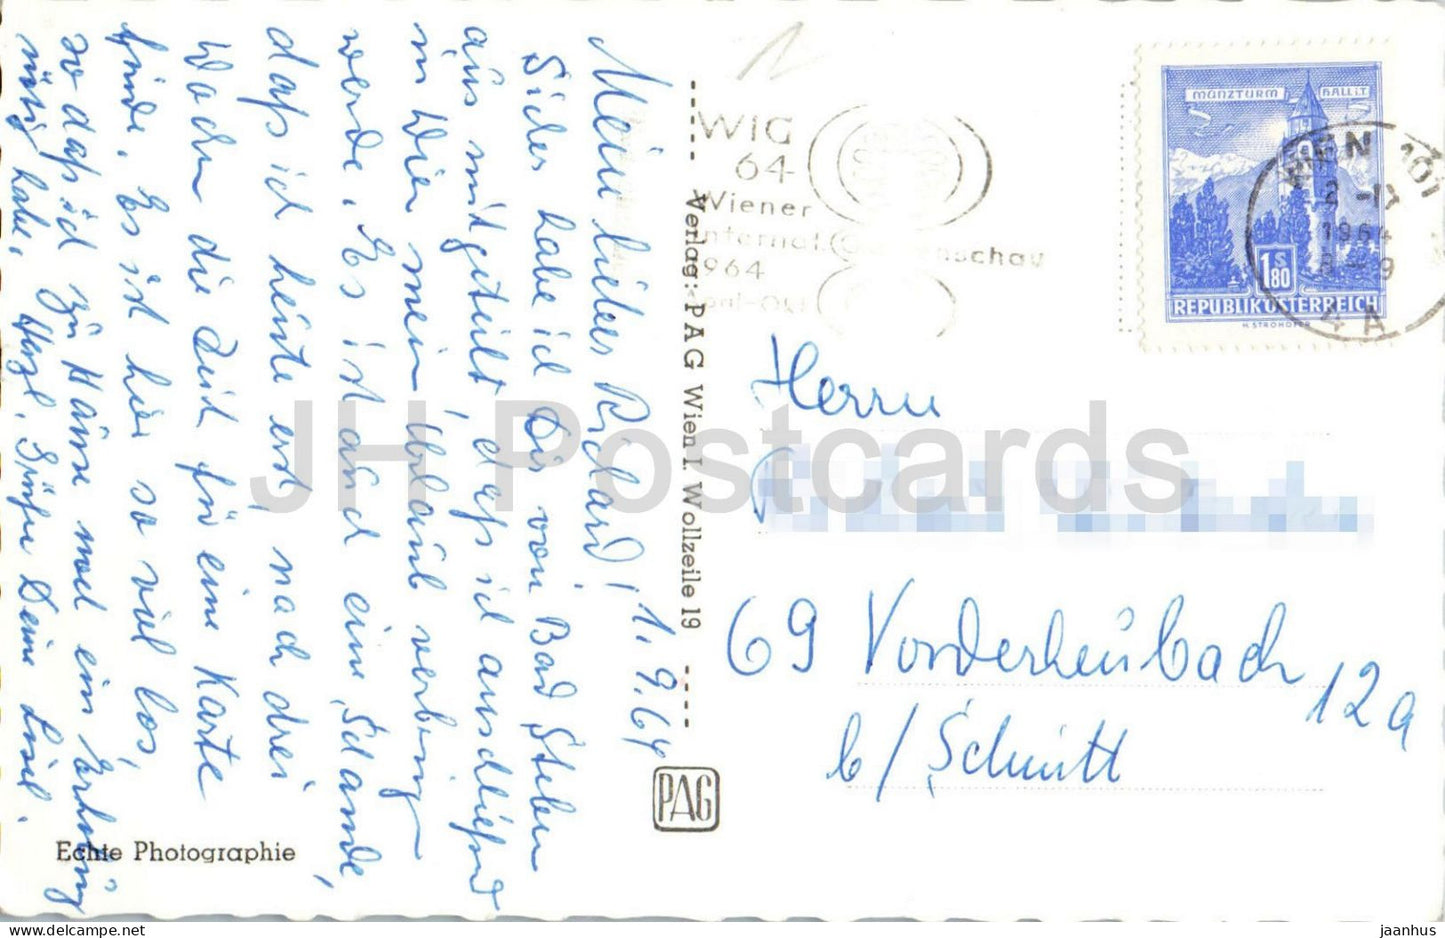 Meine lieber Richard! 1.9.64
Sicher habe ich Dir von Bad Steben
aus mitgeteilt, daß ich anschließend
in Wien mein Urlaub verbringen
werde. Es ist auch eine Schande,
daß ich heute erst, nach drei
Wochen die Zeit für eine Karte
finde. Es ist hier so viel los,
so daß ich zu Hause noch ein Erholung
nötig habe. Herzl. Grüße Deine
Echte Photographie
Verlag: PAG Wien I. Wollzeile 19
PAG
WIG
64
Wiener
Internat. Gartenschau
1964
MÜNZTURM HALL i.T.
1S80
REPUBLIK ÖSTERREICH
H. STROHOFER
WIEN 101
2.-IX
1964
8-9
4A
Herrn
69 Vorderheubach 12a
b/ Schmitt
JH Postcards
jaanhus